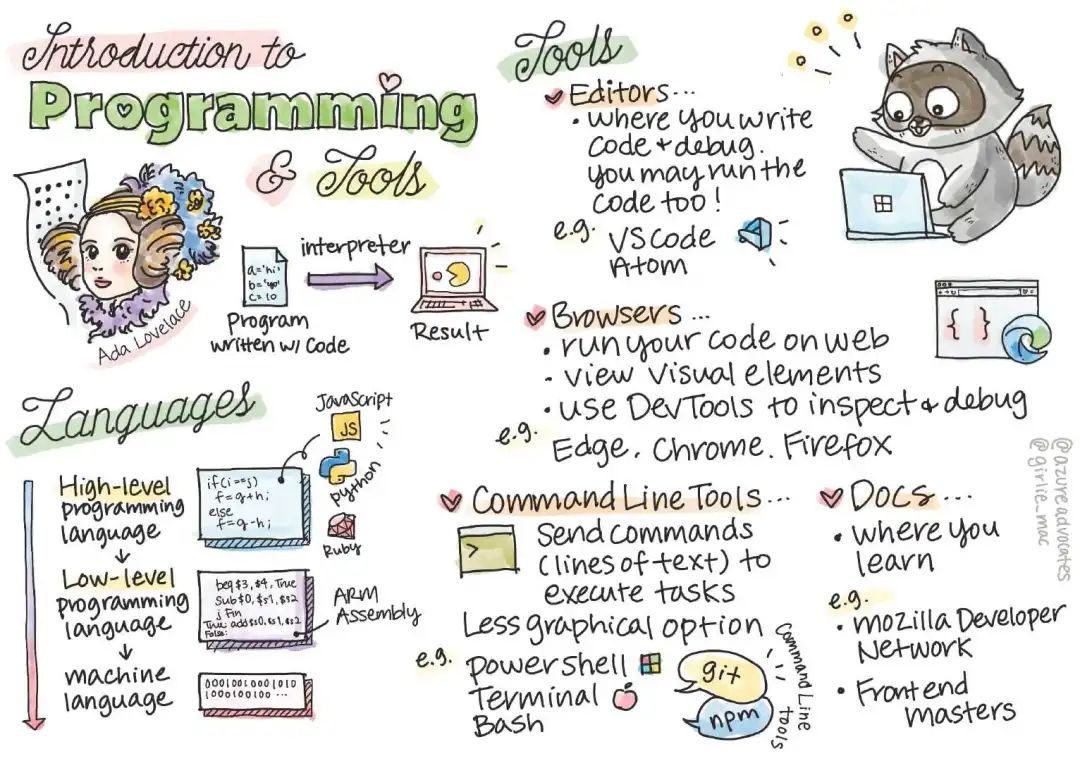 Introduction to
Programming
& Tools
Ada Lovelace
a='hi'
b='yo'
c=10
interpreter
Program
written w/ Code
Result
Languages
High-level
programming
language
Low-level
programming
language
machine
language
if(i==j)
f=g+h;
else
f=g-h;
JavaScript
JS
python
Ruby
beq $3,$4,True
Sub $0,$s1,$s2
j Fin
True: add $s0,$s1,$s2
False:
ARM
Assembly
0001001000101 0
1000100100 ...
Tools
Editors...
• where you write
code + debug.
you may run the
code too!
e.g.
VS Code
Atom
Browsers ...
• run your code on web
- view visual elements
• use DevTools to inspect & debug
e.g.
Edge. Chrome. Firefox
{ }
Command Line Tools ...
>
Send commands
(lines of text) to
execute tasks
Less graphical option
e.g.
powershell
Terminal
Bash
git
npm
Command Line tools
Docs ...
• where you
learn
e.g.
• mozilla Developer
Network
• Frontend
masters
@azureadvocates
@girlie_mac